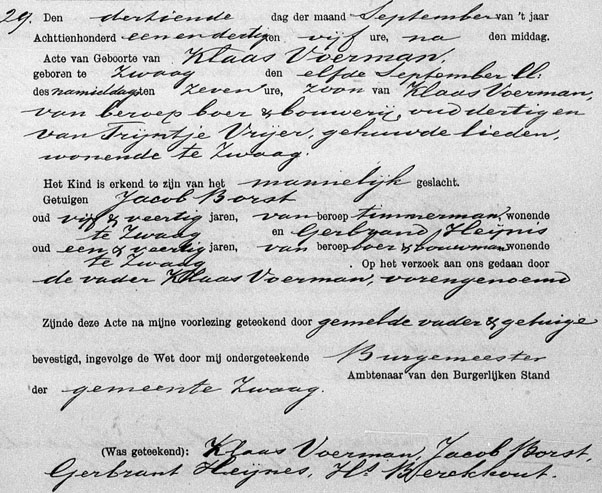 29. Den dertiende dag der maand September van 't jaar
Achttienhonderd een en dertig ten vijf ure, na den middag.
Acte van Geboorte van Klaas Voerman,
geboren te Zwaag den elfde September ll:
des namiddags ten zeven ure, zoon van Klaas Voerman,
van beroep boer & bouwerij, oud dertig en
van Trijntje Vrijer, gehuwde lieden,
wonende te Zwaag.
Het Kind is erkend te zijn van het mannelijk geslacht.
Getuigen Jacob Borst
oud vijf & veertig jaren, van beroep timmerman, wonende
te Zwaag en Gerbrand Heijnis
oud een & veertig jaren, van beroep boer & bouwman wonende
te Zwaag . Op het verzoek aan ons gedaan door
de vader Klaas Voerman, vorengenoemd
Zijnde deze Acte na mijne voorlezing geteekend door gemelde vader & getuige
bevestigd, ingevolge de Wet door mij ondergeteekende Burgemeester
Ambtenaar van den Burgerlijken Stand
der gemeente Zwaag.
(Was geteekend): Klaas Voerman, Jacob Borst,
Gerbrant Heijnes, Hs Berckhout.